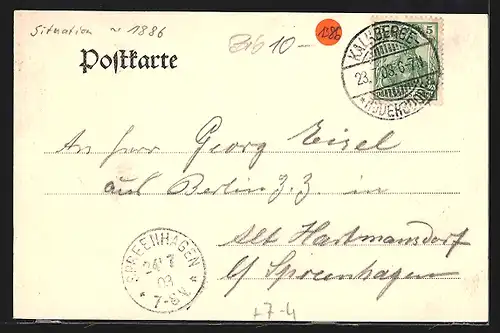 Situation ~ 1886
10 -
1886
Postkarte
5
KALKBERGE
23. 7. 03. 6-7 N.
* RÜDERSDORF
An Herr Georg Eisel
aus Berlin z. Z. in
Alt Hartmansdorf
b/ Spreenhagen
SPREENHAGEN
24 7
03
* 7-8 V. *
+7-4